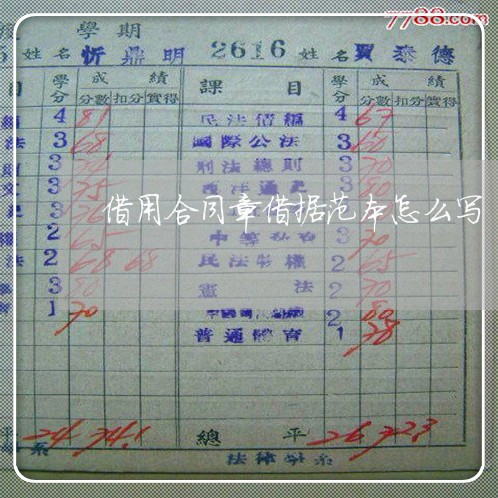 7788.com
學期
姓名 忻鼎明 2616 姓名 賈泰德
目 學分 成績 課目 學分 成績
分數 扣分 實得 分數 扣分 實得
4 81 民法債編 4 67
法 3 68 國際公法 3 60
3 刑法總則 3 70
3 75 3 80
借用合同章借据范本怎么写
2 65 3 70
法 2 68 68 民法物權 2 65
3 80 憲法 2 70
1 70 2 80
普通體育 1 78
平 24 74.1 總平 26 72.3
系 法律學系